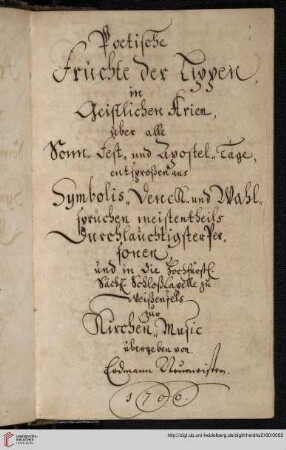 Poetische
Früchte der Lippen,
in
Geistlichen Arien,
über alle
Sonn- Fest- und Apostel-Tage,
entsproßen aus
Symbolis, Denck- und Wahl-
sprüchen meistentheils
Durchlauchtigster Per-
sonen,
und in die Hochfürstl.
Sächß. Schloßkapelle zu
Weißenfels
zur
Kirchen-Music
übergeben von
Erdmann Neumeistern.
1700.
UNIVERSITÄTS-
BIBLIOTHEK
HEIDELBERG